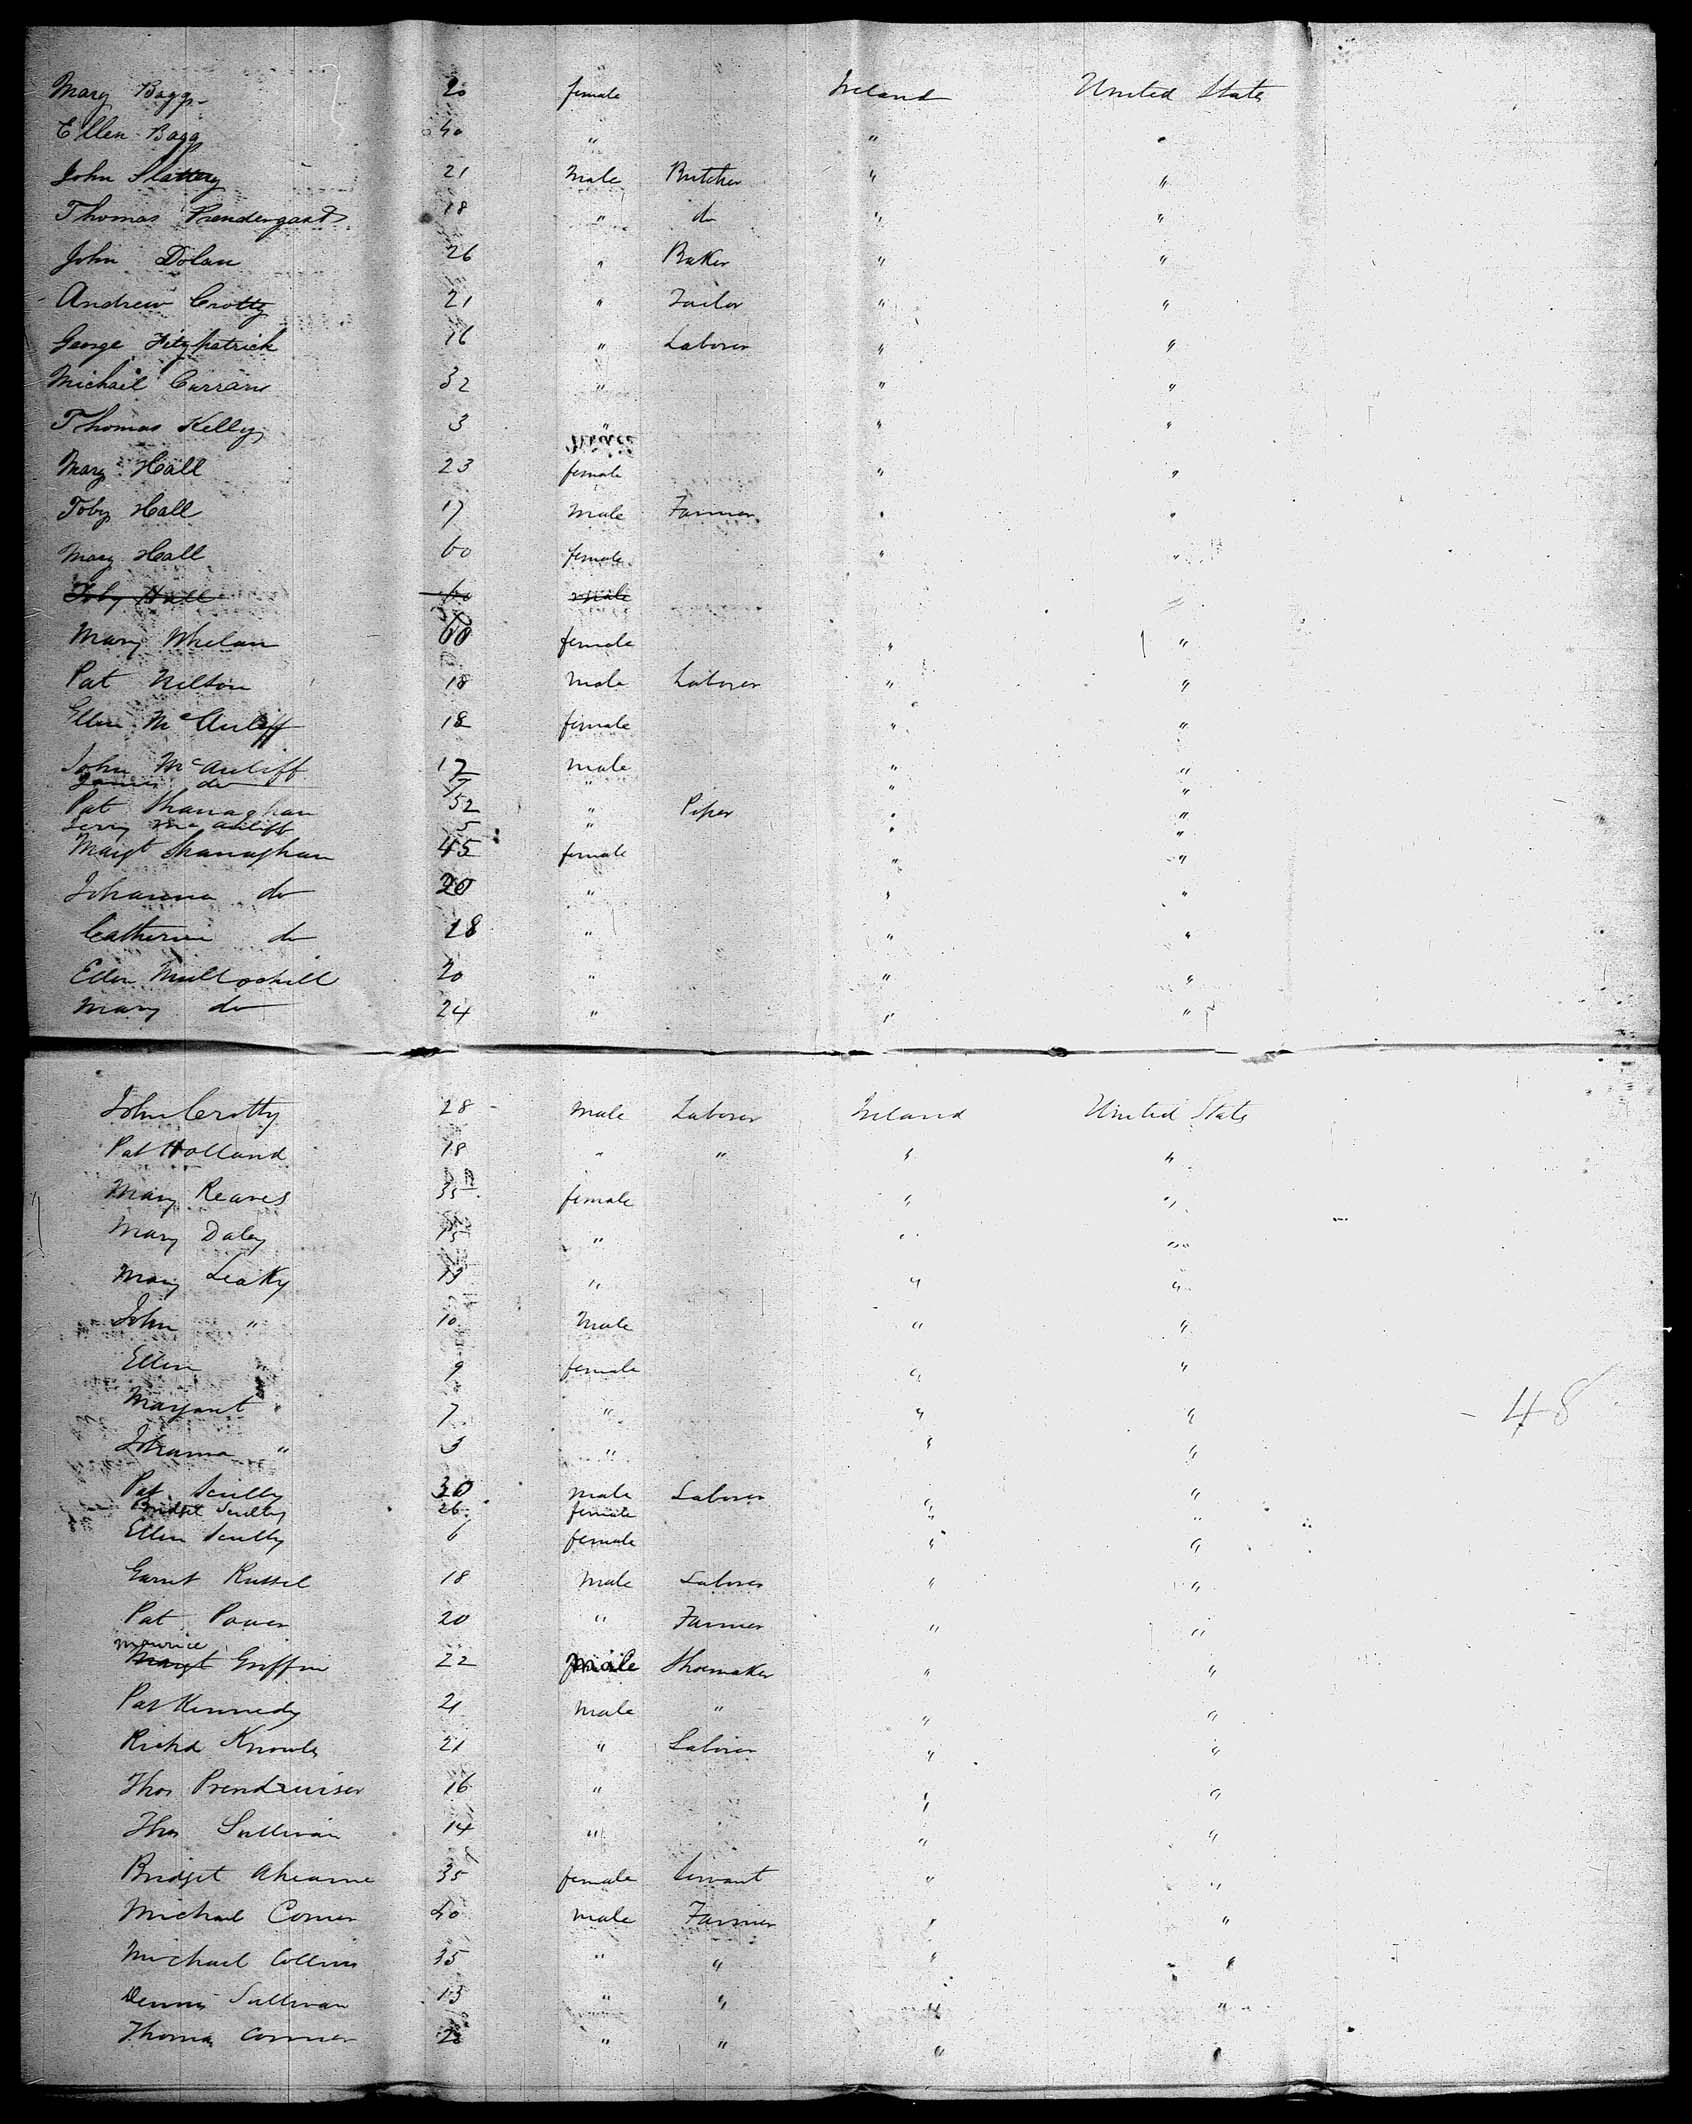 Mary Bagg 20 female Ireland United States
Ellen Bagg 40 " " "
John Slattery 21 Male Butcher " "
Thomas Prendergast 18 " do " "
John Dolan 26 " Baker " "
Andrew Crotty 21 " Tailor " "
George Fitzpatrick 16 " Laborer " "
Michael Curran 32 " " "
Thomas Kelly 3 " " "
Mary Hall 23 female " "
Toby Hall 17 Male Farmer " "
Mary Hall 60 female " "
Toby Hall male "
Mary Whelan 60 female " "
Pat Nelson 18 Male Laborer " "
Ellen McAuliff 18 female " "
John McAuliff 17 male " "
James do 7 " " "
Pat Shanaghan 52 " Piper " "
Jerry McAuliff 5 " " "
Margt Shanaghan 45 female " "
Johanna do 20 " " "
Catherine do 18 " " "
Ellen 20 " " "
Mary do 24 " " "
John Crotty 28 Male Laborer Ireland United States
Pat Holland 18 " " " "
Mary Reaves 35 female " "
Mary Daley 15 " " "
Mary Leaky 13 " " "
John " 10 Male " "
Ellen " 9 female " "
Margaret " 7 " " " - 48
Johanna " 3 " " "
Pat Scully 30 male Laborer " "
Bridget Scully 26 female " "
Ellen Scully 6 female " "
Garret Russel 18 Male Laborer " "
Pat Power 20 " Farmer " "
Maurice
Margt Griffin 22 Male Shoemaker " "
Pat Kennedy 21 Male " " "
Richd Knowls 21 " Laborer " "
Thos 16 " " "
Thos Sullivan 14 " " "
Bridget Ahearne 35 female Servant " "
Michael Conner 40 male Farmer " "
Michael Collins 35 " " " "
Dennis Sullivan 13 " " " "
Thomas Conner 20 " " " "